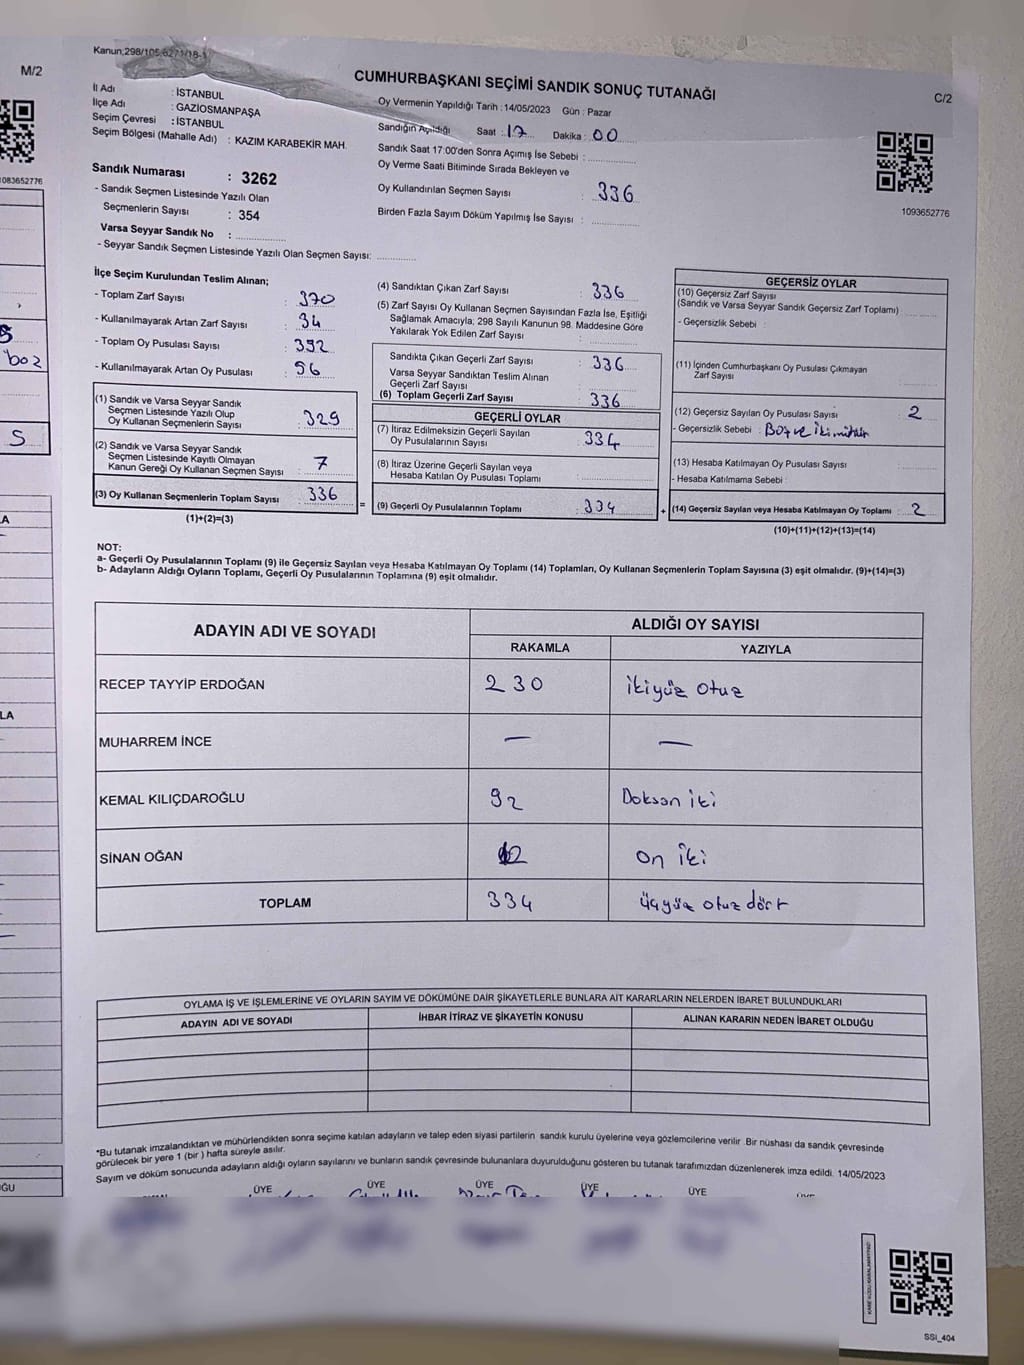 M/2
1083652776
boz
S
A
LA
ĞU
Kanun;298/105,6271/18-1
CUMHURBAŞKANI SEÇİMİ SANDIK SONUÇ TUTANAĞI
C/2
İl Adı : İSTANBUL
İlçe Adı : GAZİOSMANPAŞA
Seçim Çevresi : İSTANBUL
Seçim Bölgesi (Mahalle Adı) : KAZIM KARABEKİR MAH.
Sandık Numarası : 3262
- Sandık Seçmen Listesinde Yazılı Olan
Seçmenlerin Sayısı : 354
Varsa Seyyar Sandık No :
- Seyyar Sandık Seçmen Listesinde Yazılı Olan Seçmen Sayısı:
Oy Vermenin Yapıldığı Tarih : 14/05/2023 Gün : Pazar
Sandığın Açıldığı Saat : 17 Dakika : 00
Sandık Saat 17:00'den Sonra Açımış İse Sebebi :
Oy Verme Saati Bitiminde Sırada Bekleyen ve
Oy Kullandırılan Seçmen Sayısı : 336
Birden Fazla Sayım Döküm Yapılmış İse Sayısı :
1093652776
İlçe Seçim Kurulundan Teslim Alınan;
- Toplam Zarf Sayısı : 370
- Kullanılmayarak Artan Zarf Sayısı : 34
- Toplam Oy Pusulası Sayısı : 392
- Kullanılmayarak Artan Oy Pusulası : 56
(1) Sandık ve Varsa Seyyar Sandık
Seçmen Listesinde Yazılı Olup
Oy Kullanan Seçmenlerin Sayısı : 329
(2) Sandık ve Varsa Seyyar Sandık
Seçmen Listesinde Kayıtlı Olmayan
Kanun Gereği Oy Kullanan Seçmen Sayısı : 7
(3) Oy Kullanan Seçmenlerin Toplam Sayısı : 336
(1)+(2)=(3)
=
(4) Sandıktan Çıkan Zarf Sayısı : 336
(5) Zarf Sayısı Oy Kullanan Seçmen Sayısından Fazla İse, Eşitliği
Sağlamak Amacıyla; 298 Sayılı Kanunun 98. Maddesine Göre
Yakılarak Yok Edilen Zarf Sayısı :
Sandıkta Çıkan Geçerli Zarf Sayısı : 336
Varsa Seyyar Sandıktan Teslim Alınan
Geçerli Zarf Sayısı :
(6) Toplam Geçerli Zarf Sayısı : 336
GEÇERLİ OYLAR
(7) İtiraz Edilmeksizin Geçerli Sayılan
Oy Pusulalarının Sayısı : 334
(8) İtiraz Üzerine Geçerli Sayılan veya
Hesaba Katılan Oy Pusulası Toplamı :
(9) Geçerli Oy Pusulalarının Toplamı : 334
+
GEÇERSİZ OYLAR
(10) Geçersiz Zarf Sayısı
(Sandık ve Varsa Seyyar Sandık Geçersiz Zarf Toplamı) :
- Geçersizlik Sebebi :
(11) İçinden Cumhurbaşkanı Oy Pusulası Çıkmayan
Zarf Sayısı :
(12) Geçersiz Sayılan Oy Pusulası Sayısı : 2
- Geçersizlik Sebebi : Boş ve iki mühür
(13) Hesaba Katılmayan Oy Pusulası Sayısı :
- Hesaba Katılmama Sebebi :
(14) Geçersiz Sayılan veya Hesaba Katılmayan Oy Toplamı : 2
(10)+(11)+(12)+(13)=(14)
NOT:
a- Geçerli Oy Pusulalarının Toplamı (9) ile Geçersiz Sayılan veya Hesaba Katılmayan Oy Toplamı (14) Toplamları, Oy Kullanan Seçmenlerin Toplam Sayısına (3) eşit olmalıdır. (9)+(14)=(3)
b- Adayların Aldığı Oyların Toplamı, Geçerli Oy Pusulalarının Toplamına (9) eşit olmalıdır.
ADAYIN ADI VE SOYADI ALDIĞI OY SAYISI
RAKAMLA YAZIYLA
RECEP TAYYİP ERDOĞAN 230 ikiyüz otuz
MUHARREM İNCE — —
KEMAL KILIÇDAROĞLU 92 Doksan iki
SİNAN OĞAN 12 on iki
TOPLAM 334 üçyüz otuz dört
OYLAMA İŞ VE İŞLEMLERİNE VE OYLARIN SAYIM VE DÖKÜMÜNE DAİR ŞİKAYETLERLE BUNLARA AİT KARARLARIN NELERDEN İBARET BULUNDUKLARI
ADAYIN ADI VE SOYADI İHBAR İTİRAZ VE ŞİKAYETİN KONUSU ALINAN KARARIN NEDEN İBARET OLDUĞU
*Bu tutanak imzalandıktan ve mühürlendikten sonra seçime katılan adayların ve talep eden siyasi partilerin sandık kurulu üyelerine veya gözlemcilerine verilir .Bir nüshası da sandık çevresinde
görülecek bir yere 1 (bir ) hafta süreyle asılır.
Sayım ve döküm sonucunda adayların aldığı oyların sayılarını ve bunların sandık çevresinde bulunanlara duyurulduğunu gösteren bu tutanak tarafımızdan düzenlenerek imza edildi. 14/05/2023
ÜYE ÜYE ÜYE ÜYE ÜYE
SSI_404